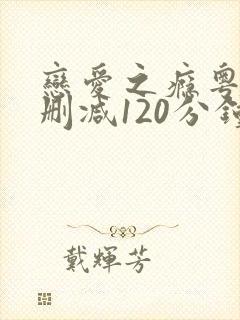 戀愛之癮粵
刪減120分鐘
戴輝芳